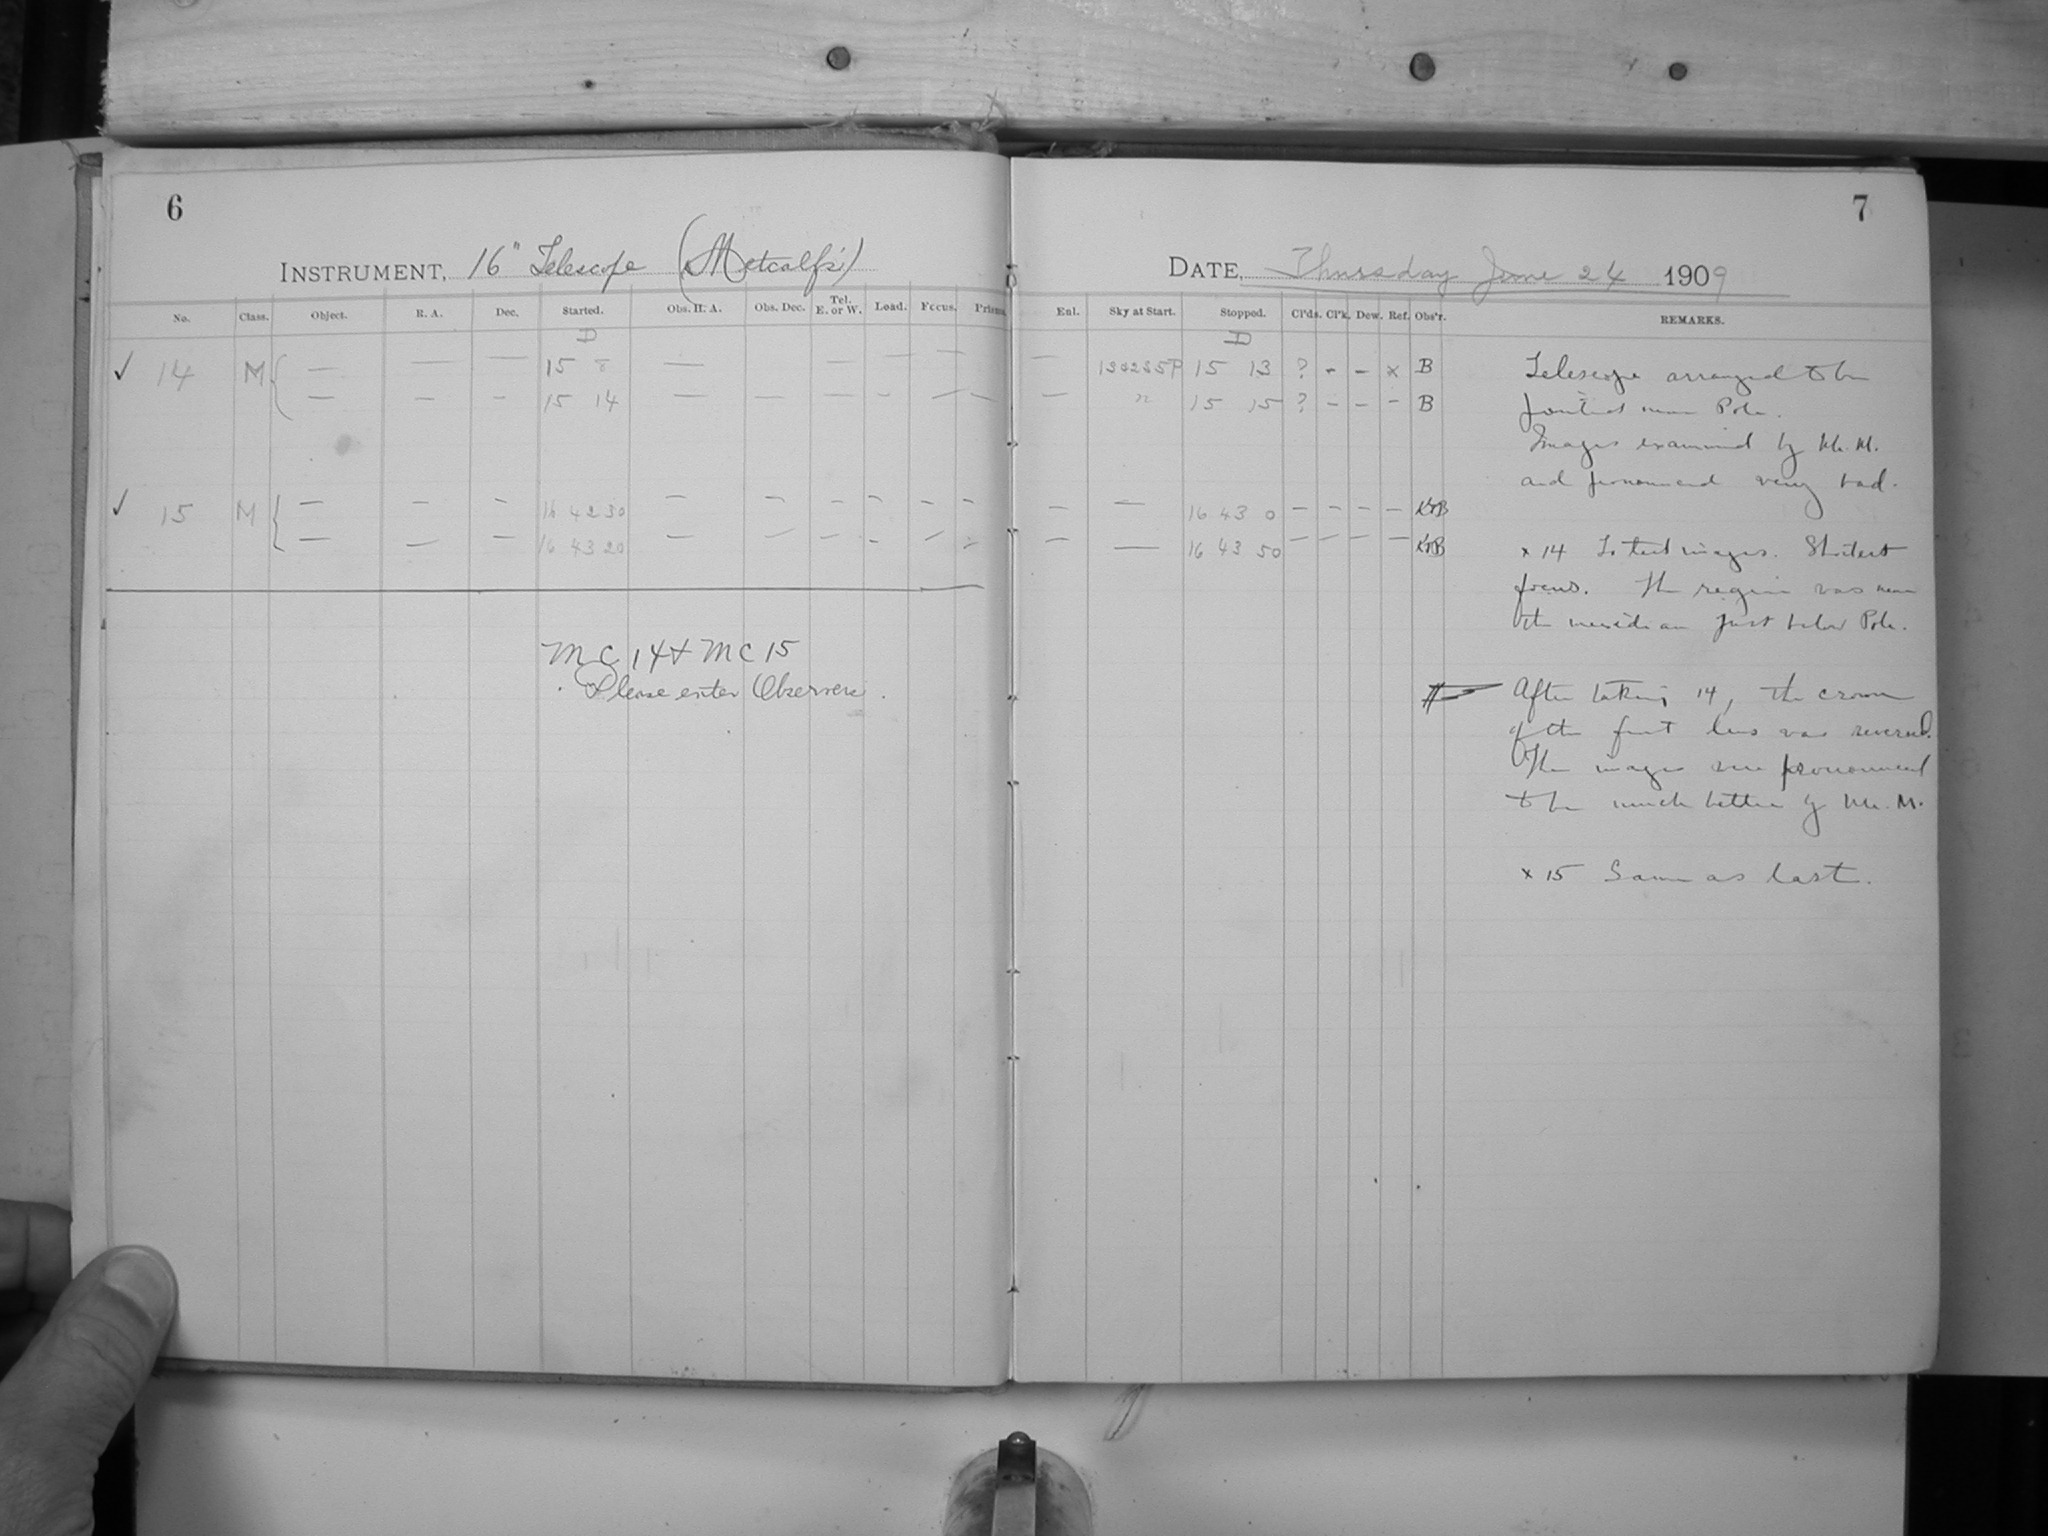 6
INSTRUMENT, 16" Telescope (Metcalf's)
No. Class. Object. R. A. Dec. Started. Obs. H. A. Obs. Dec. Tel. E. or W. Load. Focus. Prisms.
D
✓ 14 M { — — — 15 8 — — — —
— — — 15 14 — — — — — — —
✓ 15 M { — — — 16 42 30 — — — — — —
— — — 16 43 20 — — — — — —
MC 14 + MC 15
Please enter Observers.
7
DATE, Thursday June 24 1909
Enl. Sky at Start. Stopped. Cl'ds. Cl'k. Dew. Ref. Obs'r. REMARKS.
D
— 15 13 ? - - x B
— " 15 15 ? - - - B
— — 16 43 0 — — — —
— — 16 43 50 — — — —
Telescope arranged to be
pointed near Pole.
Images examined by Mr. M.
and pronounced very bad.
x 14 To test images. Shortest
focus. The region was near
the meridian just below Pole.
After taking 14, the crown
of the front lens was reversed.
The images were pronounced
to be much better by Mr. M.
x 15 Same as last.